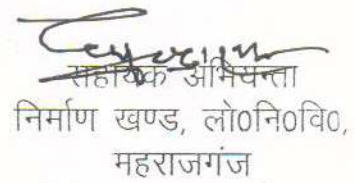 सहायक अभियन्ता
निर्माण खण्ड, लो0नि0वि0,
महराजगंज